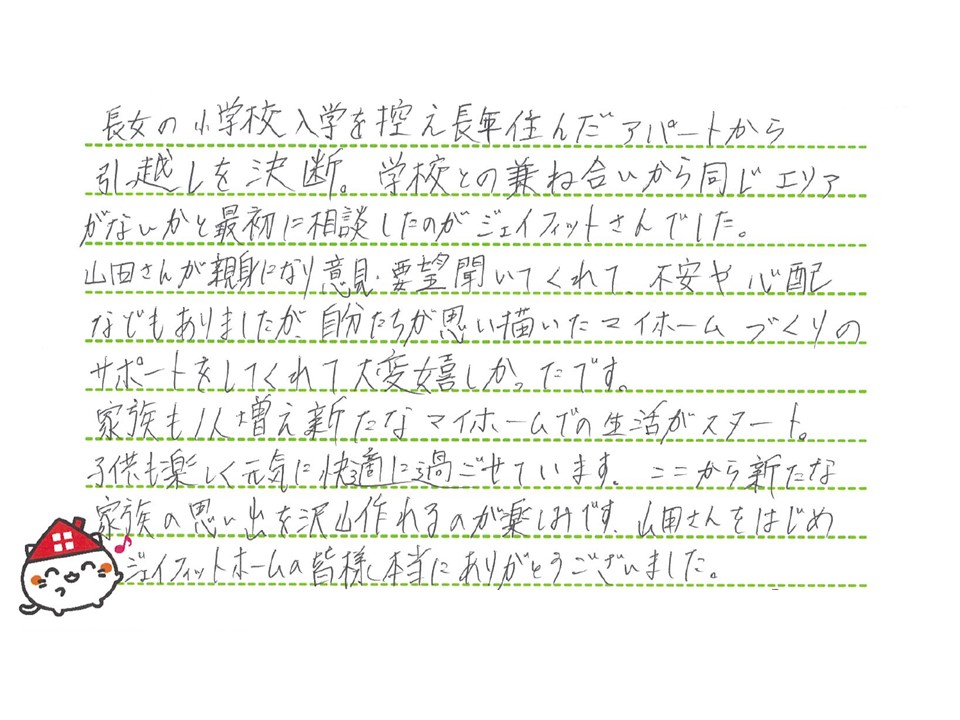 長女の小学校入学を控え長年住んだアパートから
引越しを決断。学校との兼ね合いから同じエリア
がないかと最初に相談したのがジェイフィットさんでした。
山田さんが親身になり意見・要望聞いてくれて、不安や心配
などもありましたが、自分たちが思い描いたマイホームづくりの
サポートをしてくれて大変嬉しかったです。
家族も1人増え新たなマイホームでの生活がスタート。
子供も楽しく元気に快適に過ごせています。ここから新たな
家族の思い出を沢山作れるのが楽しみです。山田さんをはじめ
ジェイフィットホームの皆様、本当にありがとうございました。